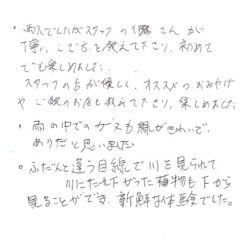 ・雨天でしたがスタッフの さんが
丁寧に を教えて下さり、初めて
でも楽しめました。
スタッフの方が優しく、オススメのおみやげ
や ご飯のお店も教えて下さり、楽しめました
・雨の中でのが又も緑がきれいで、
ありだと思いました。
・ふだんと違う目線で川を見られて
川にたれ下がった植物も下から
見ることができ、新鮮な体験でした。